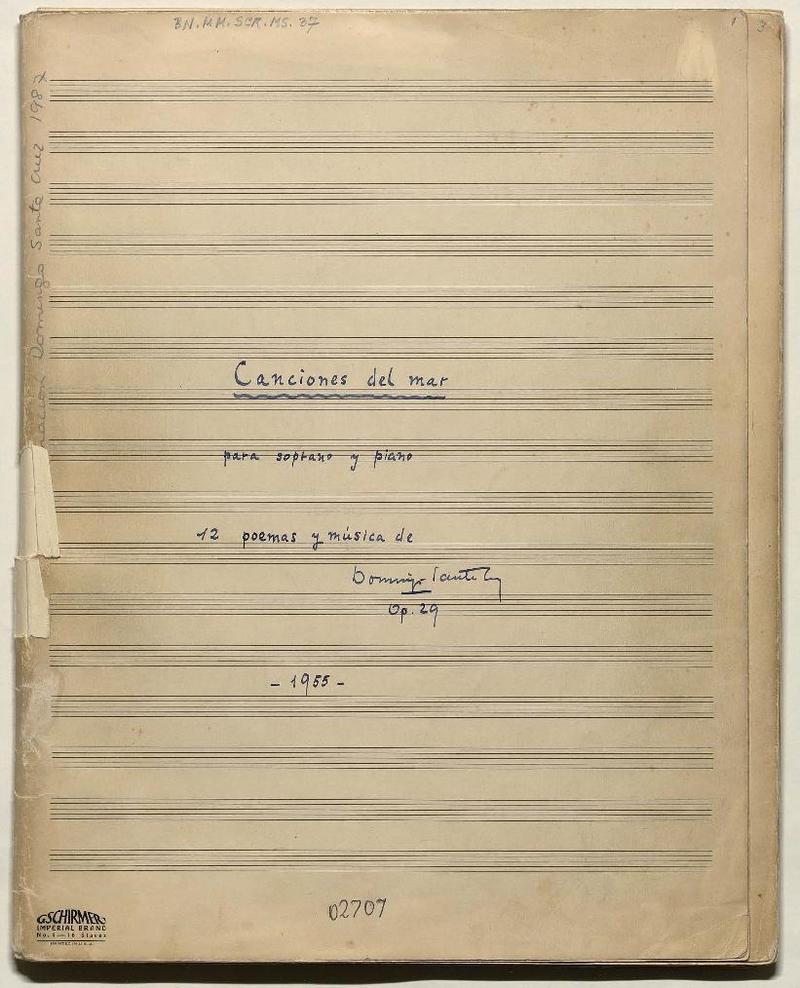 BN.MM.SCR.MS.37
1
3
Domingo Santa Cruz 1987
Canciones del mar
para soprano y piano
12 poemas y música de
Domingo Santa Cruz
Op. 29
- 1955 -
02707
G. SCHIRMER
IMPERIAL BRAND
No. 6—16 Staves